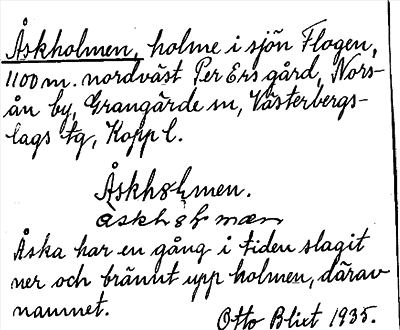 Åskholmen, holme i sjön Flogen,
1100 m. nordväst Per Ers gård, Nors-
ån by, Grangärde sn, Västerbergs-
lags tg, Kopp l.
Åskhålmen.
Åska har en gång i tiden slagit
ner och bränt upp holmen, därav
namnet.
Otto Blixt 1935.